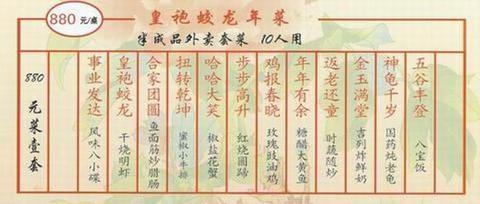 880元/桌
皇袍蛟龙年菜
半成品外卖套菜 10人用
880元菜壹套
事业发达 风味八小碟
皇袍蛟龙 干烧明虾
合家团圆 鱼面筋炒腊肠
扭转乾坤 蜜椒小牛排
哈哈大笑 椒盐花蟹
步步高升 红烧圆蹄
鸡报春晓 玫瑰豉油鸡
年年有余 糖醋大黄鱼
返老还童 时蔬随炒
金玉满堂 吉列炸鲜奶
神龟千岁 国药炖老龟
五谷丰登 八宝饭